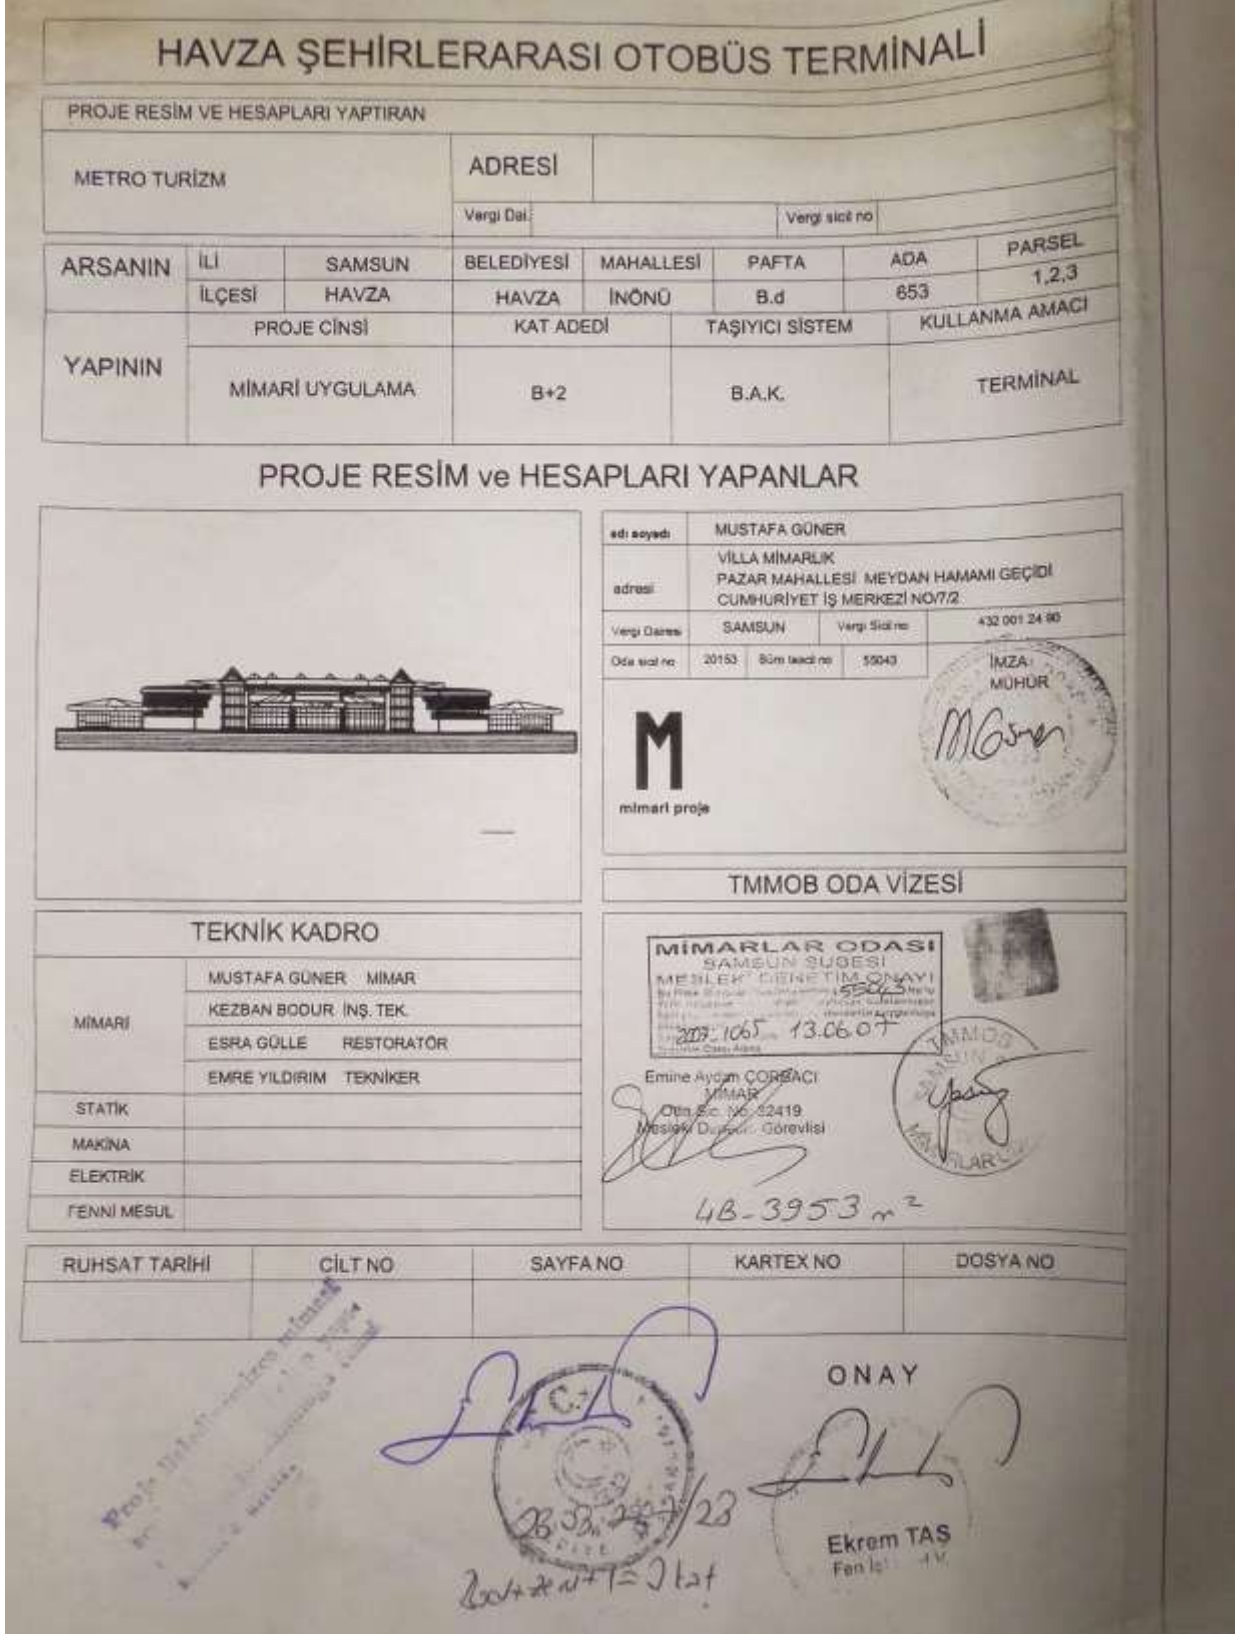 HAVZA ŞEHİRLERARASI OTOBÜS TERMİNALİ
PROJE RESİM VE HESAPLARI YAPTIRAN
METRO TURİZM
ADRESİ
Vergi Dai.
Vergi sicil no
ARSANIN
İLİ SAMSUN BELEDİYESİ MAHALLESİ PAFTA ADA PARSEL
İLÇESİ HAVZA HAVZA İNÖNÜ B.d 653 1,2,3
YAPININ
PROJE CİNSİ KAT ADEDİ TAŞIYICI SİSTEM KULLANMA AMACI
MİMARİ UYGULAMA B+2 B.A.K. TERMİNAL
PROJE RESİM ve HESAPLARI YAPANLAR
adı soyadı MUSTAFA GÜNER
adresi
VİLLA MİMARLIK
PAZAR MAHALLESİ MEYDAN HAMAMI GEÇİDİ
CUMHURİYET İŞ MERKEZİ NO/7/2
Vergi Dairesi SAMSUN Vergi Sicil no 432 001 24 90
Oda sicil no 20153 Büro tescil no 55043
İMZA
MÜHÜR
M
mimari proje
TMMOB ODA VİZESİ
TEKNİK KADRO
MİMARİ
MUSTAFA GÜNER MİMAR
KEZBAN BODUR İNŞ. TEK.
ESRA GÜLLE RESTORATÖR
EMRE YILDIRIM TEKNİKER
STATİK
MAKİNA
ELEKTRİK
FENNİ MESUL
MİMARLAR ODASI
SAMSUN ŞUBESİ
MESLEKİ DENETİM ONAYI
55043
2007-1065 13.06.07
Emine Aydan ÇORBACI
MİMAR
Oda Sic. No: 32419
Mesleki Görevlisi
TMMOB
SAMSUN
MİMARLAR
4B-3953 m²
RUHSAT TARİHİ CİLT NO SAYFA NO KARTEX NO DOSYA NO
Proje
T.C.
ONAY
/23
Ekrem TAŞ
Fen